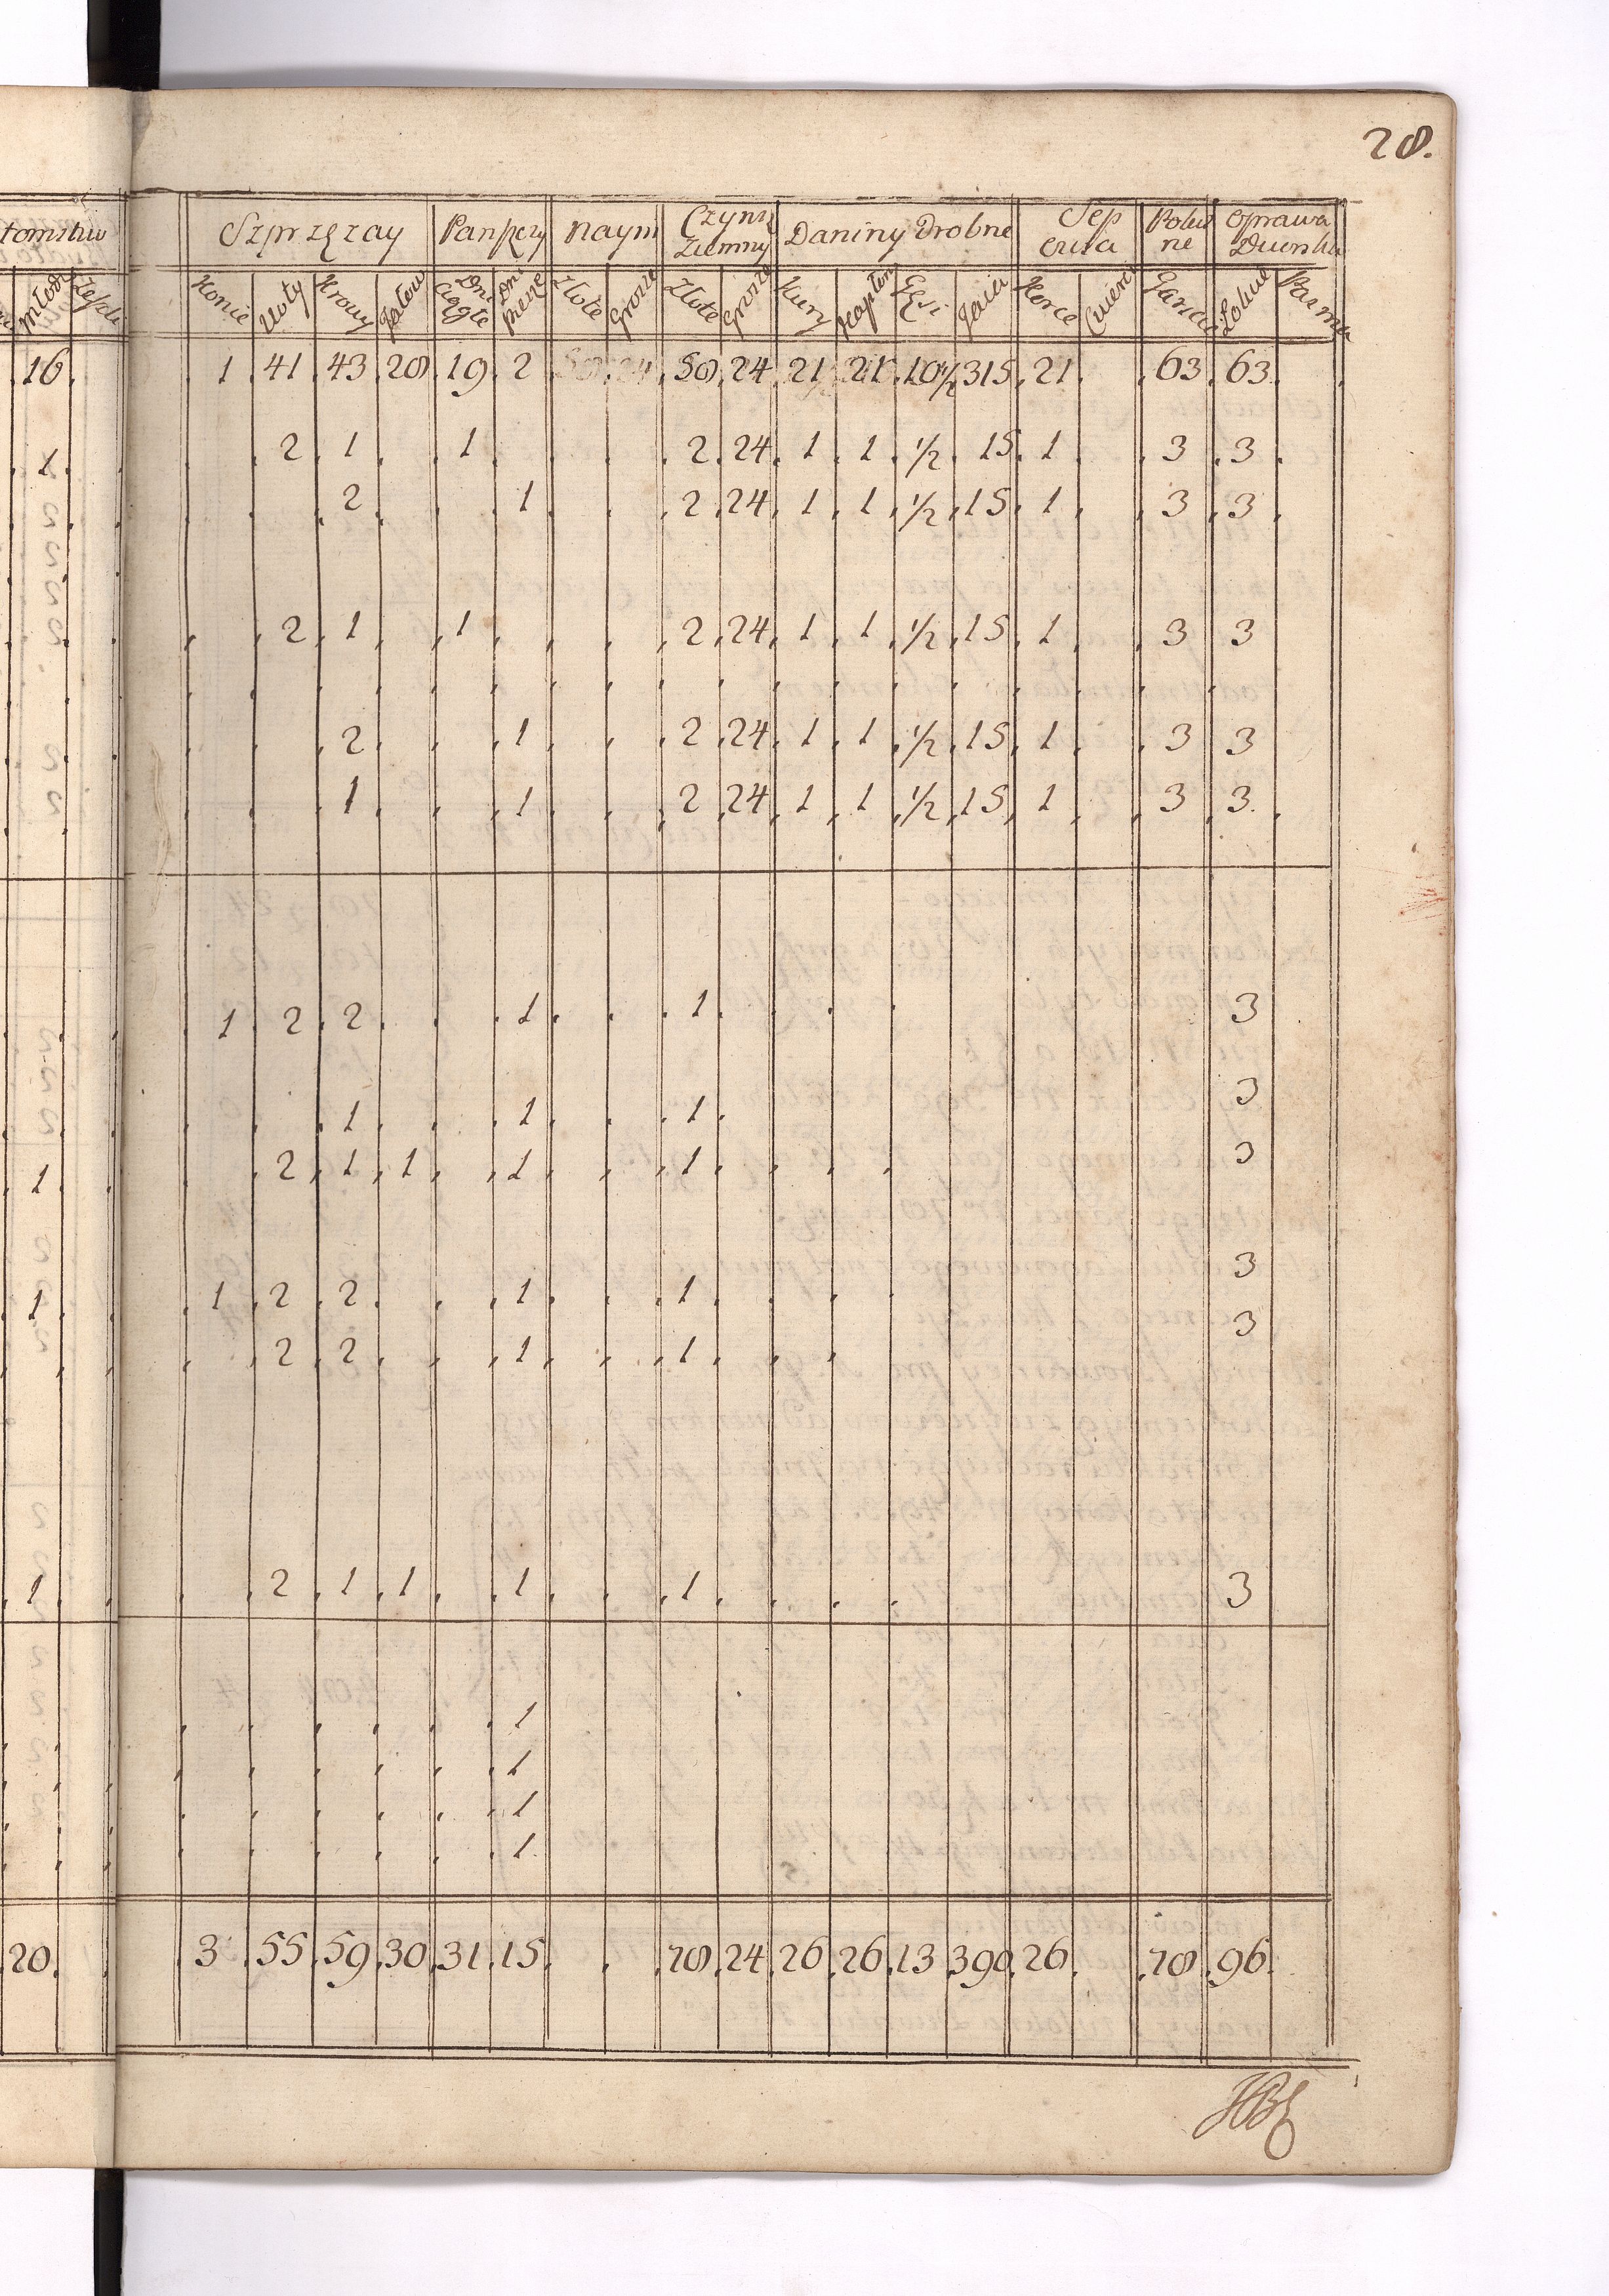 28.
Szprzęzay Panszczy Naym Czynsz Ziemny Daniny Drobne Sep Owsa Polne Oprawa
Konie Woły Krowy Dni Ciągłe Dni piesze Złote grosze Złote grosze Kury kapłony Gęsi Jaia Korce Cwierci Garnce
16 1 41 43 28 19 2 58 24 21 21 10½ 315 21 63 63
1 2 1 1 2 24 1 1 ½ 15 1 3 3
2 1 2 24 1 1 ½ 15 1 3 3
2 1 1 2 24 1 1 ½ 15 1 3 3
2 1 2 24 1 1 ½ 15 1 3 3
1 1 2 24 1 1 ½ 15 1 3 3
1 2 2 1 1 3
1 1 1 3
1 2 1 1 1 1 3
1 1 2 2 1 1 3
2 2 1 1 3
1 2 1 1 1 1 3
1
1
1
1
20 3 55 59 30 31 15 78 24 26 26 13 390 26 78 96